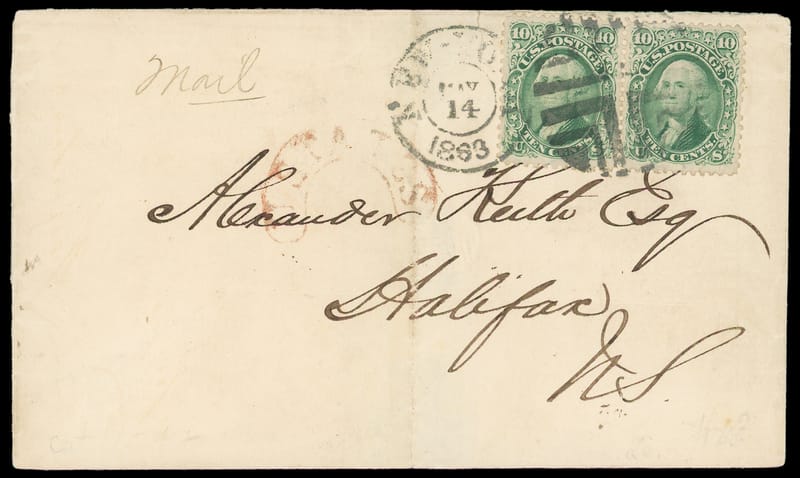 Mail
NEW-YORK
MAY
14
1863
10 10
U.S. POSTAGE
TEN CENTS
U S
10 10
U.S. POSTAGE
TEN CENTS
U S
Alexander Keith Esq
Halifax
N.S.